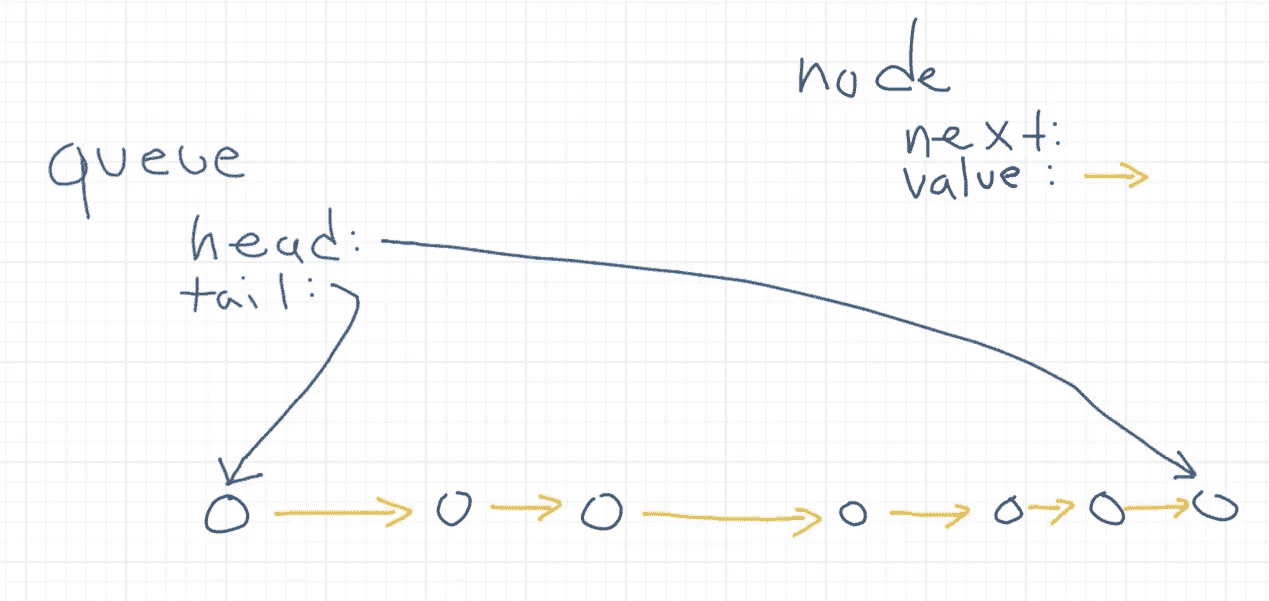 node
next:
value:
queue
head:
tail: